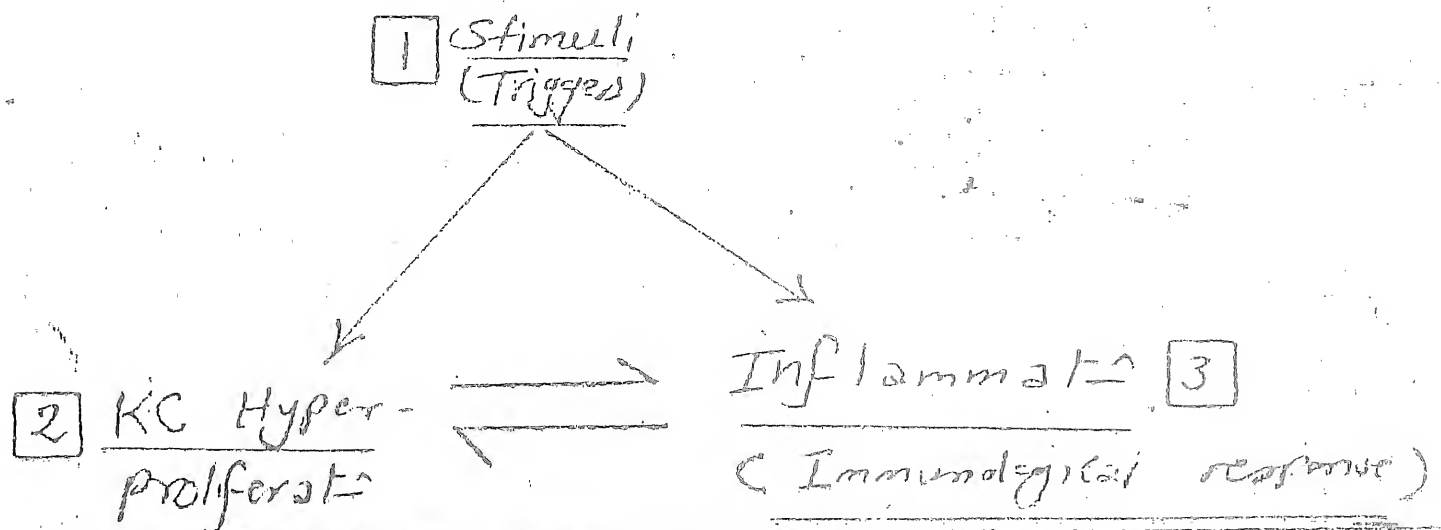 1 Stimuli
(Triggers)
2 KC Hyper-
proliferat=^
Inflammat=^ 3
(Immunological response)